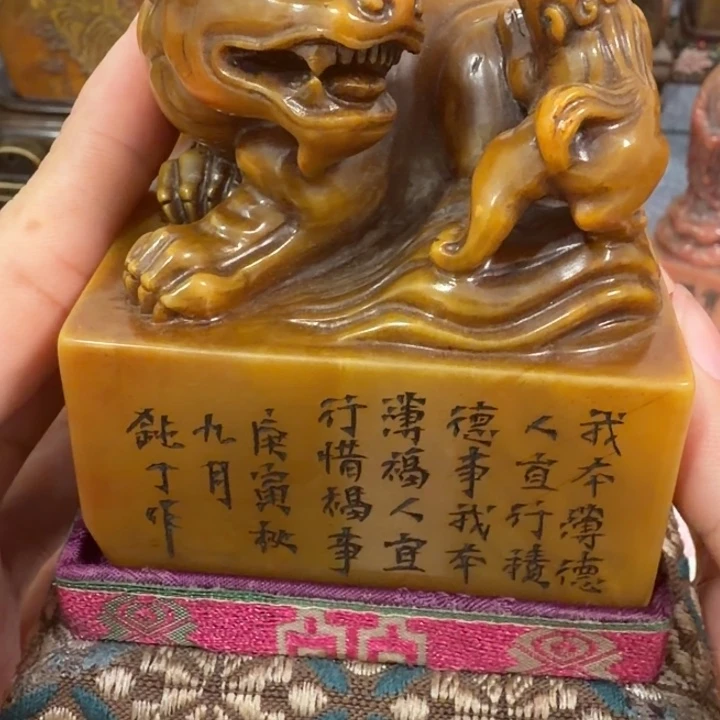 我本薄德
人宜行積
德事我本
薄福人宜
行惜福事
庚寅秋
九月
鈍丁作